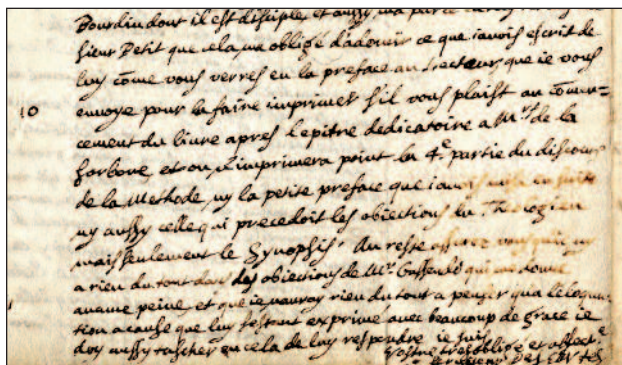 Bourdin dont il est disciple, et aussy
sieur Petit que cela m'a obligé d'adoucir ce que i'avois escrit de
luy cõme vous verres en la preface au Lecteur que ie vous
10 envoye pour la faire imprimer s'il vous plaist au cõmen=
cement du livre apres l'epitre dedicatoire a Mrs de la
Sorbone, et on n'imprimera point la 4e partie du discours
de la Methode, ny la petite preface que i'avois mise en suite
ny aussy celle qui precedoit les obiections du Theologien
mais seulement le Synopsis. Au reste assurez vous qu'il n'y
a rien du tout dans les obiections de Mr Gassendi qui me donne
aucune peine, et que ie n'auray rien du tout a penser qu'a
tion a cause que luy s'estant exprimé avec beaucoup de grace ie
doy aussy tascher en cela de luy respondre ie suis
Vostre tres obligé et affect.é
serviteur DESCARTES